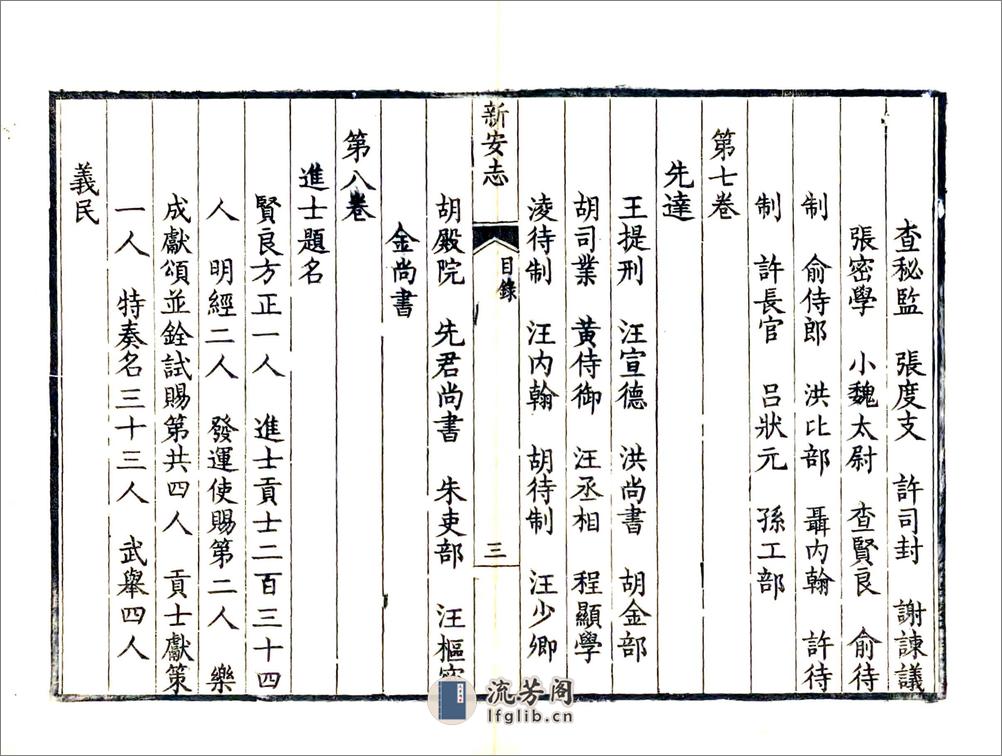 查秘監　張度支　許司封　謝諫議
張密學　小魏太尉　查賢良　俞待
制　俞侍郎　洪比部　聶內翰　許待
制　許長官　呂狀元　孫工部
第七卷
先達
王提刑　汪宣德　洪尚書　胡金部
胡司業　黃侍御　汪丞相　程顯學
淩待制　汪內翰　胡待制　汪少卿
新安志
目錄
三
胡殿院　先君尚書　朱吏部　汪樞密
金尚書
第八卷
進士題名
賢良方正一人　進士貢士二百三十四
人　明經二人　發運使賜第二人　樂
成獻頌並銓試賜第共四人　貢士獻策
一人　特奏名三十三人　武舉四人
義民
流芳阁
lfglib.cn